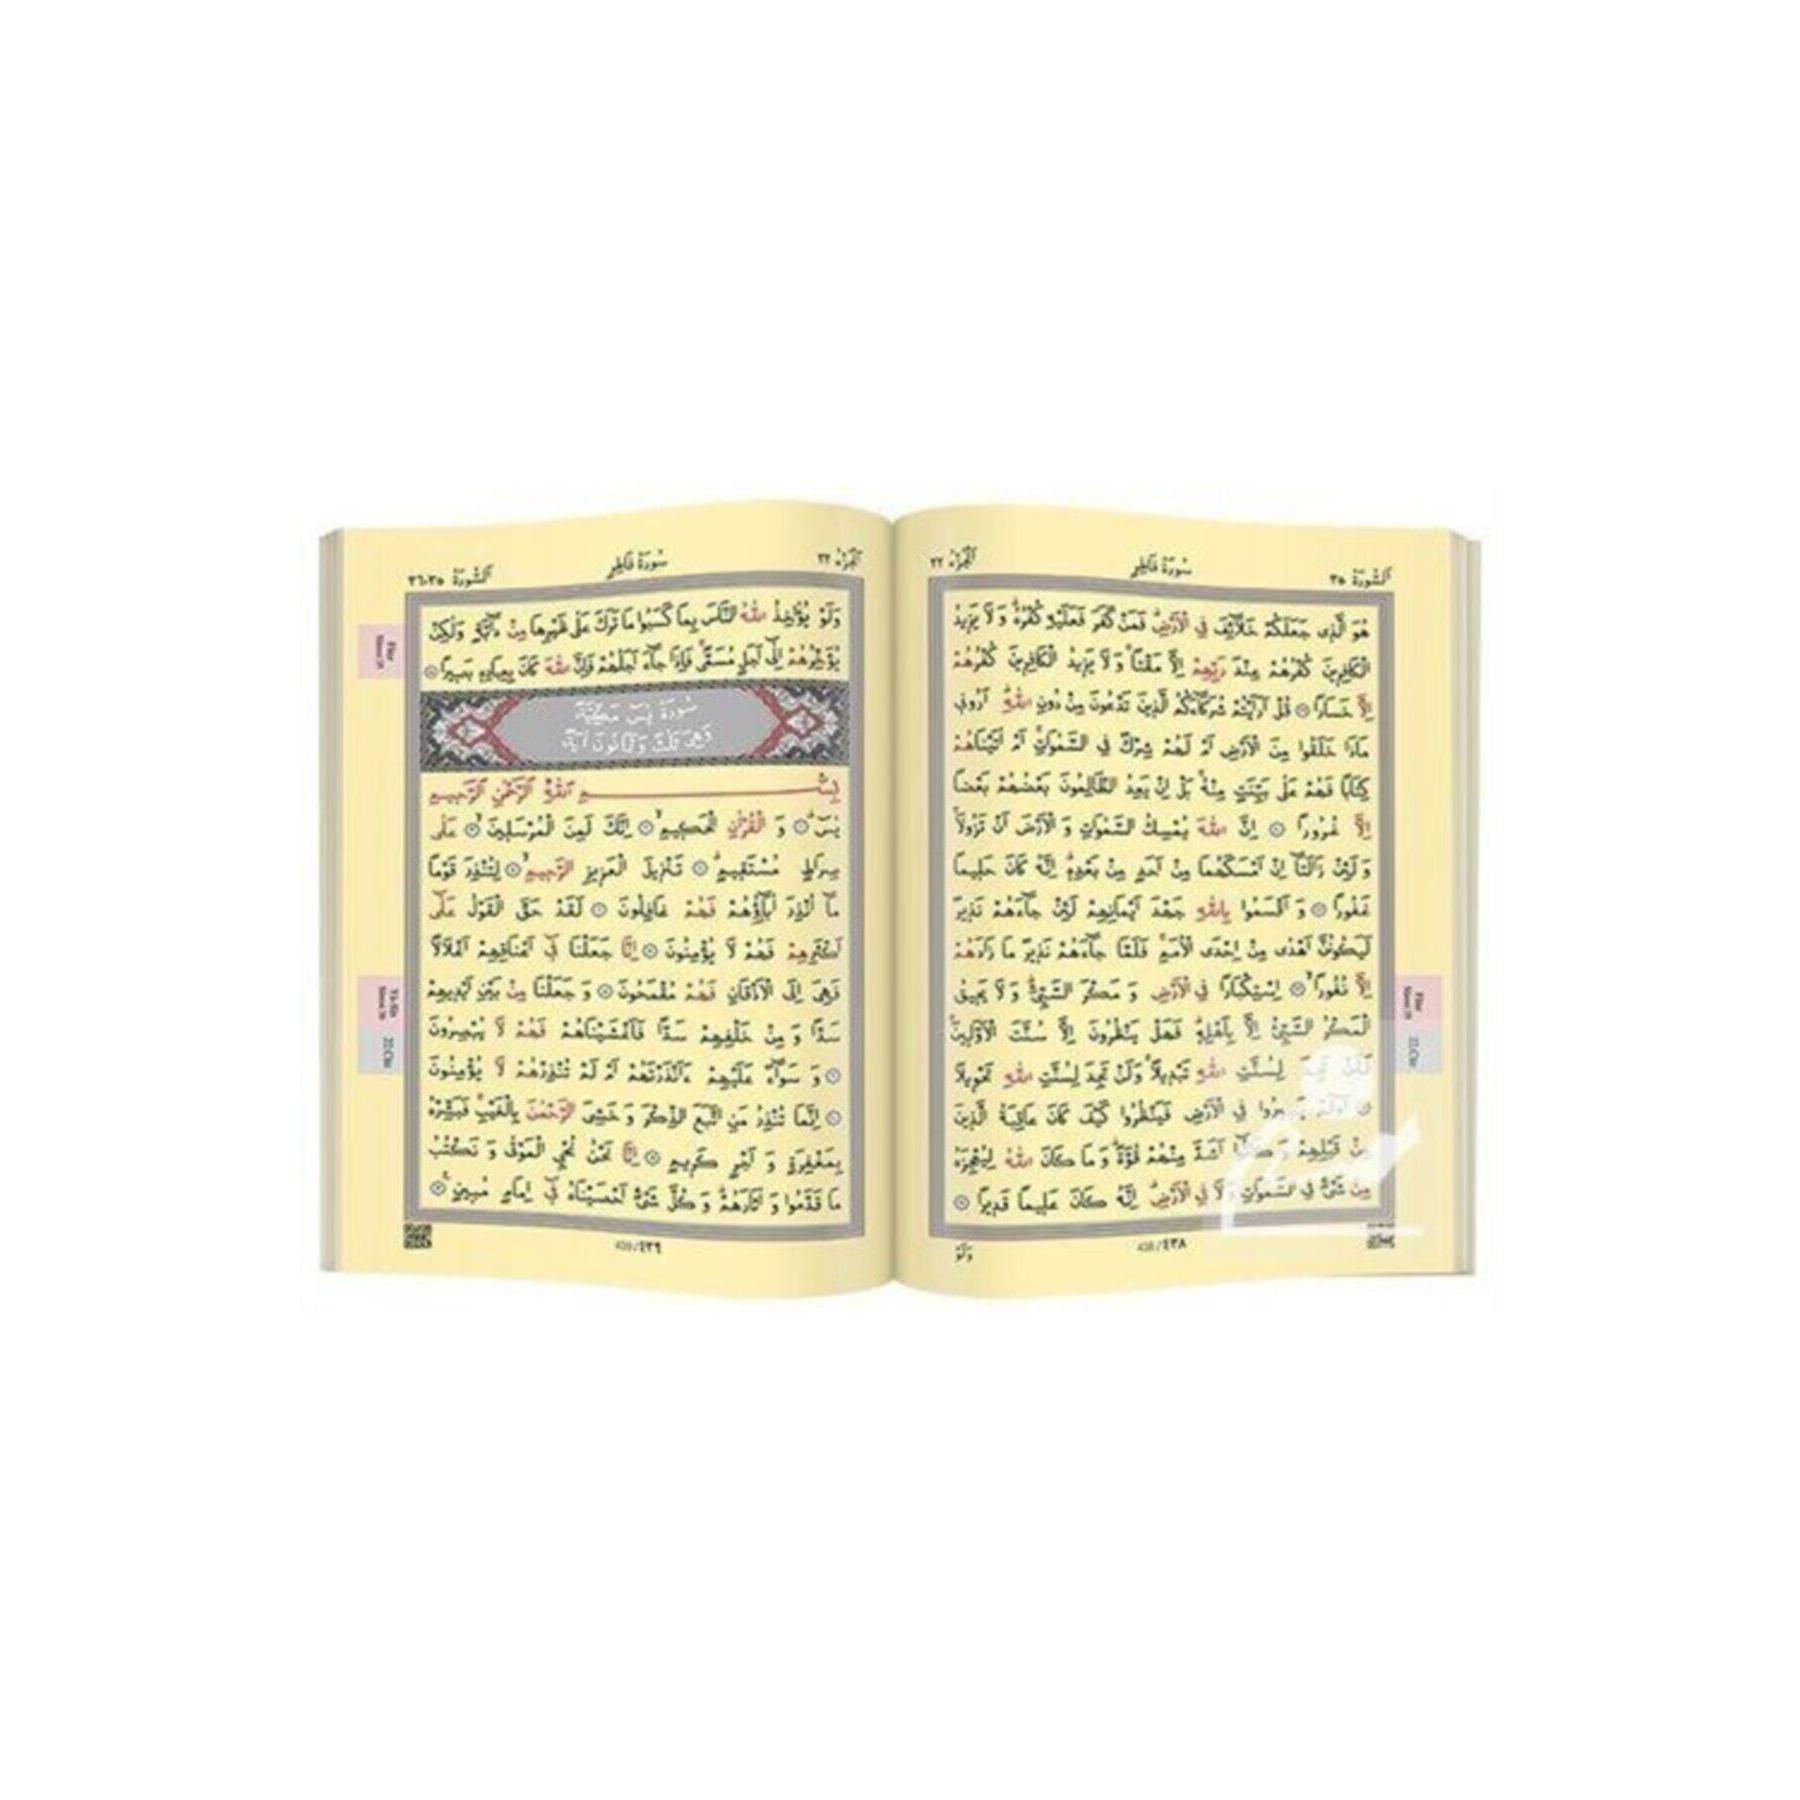 اَلسُّورَةُ ٣٥
سُورَةُ فَاطِرٍ
اَلْجُزْءُ ٢٢
هُوَ الَّذِي جَعَلَكُمْ خَلَائِفَ فِي الْاَرْضِ فَمَنْ كَفَرَ فَعَلَيْهِ كُفْرُهُ وَ لَا يَزِيدُ
الْكَافِرِينَ كُفْرُهُمْ عِنْدَ رَبِّهِمْ اِلَّا مَقْتًا وَ لَا يَزِيدُ الْكَافِرِينَ كُفْرُهُمْ
اِلَّا خَسَارًا ۝ قُلْ اَرَاَيْتُمْ شُرَكَاءَكُمُ الَّذِينَ تَدْعُونَ مِنْ دُونِ اللّٰهِ اَرُونِي
مَاذَا خَلَقُوا مِنَ الْاَرْضِ اَمْ لَهُمْ شِرْكٌ فِي السَّمٰوَاتِ اَمْ اٰتَيْنَاهُمْ
كِتَابًا فَهُمْ عَلٰى بَيِّنَتٍ مِنْهُ بَلْ اِنْ يَعِدُ الظَّالِمُونَ بَعْضُهُمْ بَعْضًا
اِلَّا غُرُورًا ۝ اِنَّ اللّٰهَ يُمْسِكُ السَّمٰوَاتِ وَ الْاَرْضَ اَنْ تَزُولَا
وَ لَئِنْ زَالَتَا اِنْ اَمْسَكَهُمَا مِنْ اَحَدٍ مِنْ بَعْدِهِ اِنَّهُ كَانَ حَلِيمًا
غَفُورًا ۝ وَ اَقْسَمُوا بِاللّٰهِ جَهْدَ اَيْمَانِهِمْ لَئِنْ جَاءَهُمْ نَذِيرٌ
لَيَكُونُنَّ اَهْدٰى مِنْ اِحْدَى الْاُمَمِ فَلَمَّا جَاءَهُمْ نَذِيرٌ مَا زَادَهُمْ
اِلَّا نُفُورًا ۝ اِسْتِكْبَارًا فِي الْاَرْضِ وَ مَكْرَ السَّيِّئِ وَ لَا يَحِيقُ
الْمَكْرُ السَّيِّئُ اِلَّا بِاَهْلِهِ فَهَلْ يَنْظُرُونَ اِلَّا سُنَّتَ الْاَوَّلِينَ
فَلَنْ تَجِدَ لِسُنَّتِ اللّٰهِ تَبْدِيلًا وَلَنْ تَجِدَ لِسُنَّتِ اللّٰهِ تَحْوِيلًا
۝ اَوَلَمْ يَسِيرُوا فِي الْاَرْضِ فَيَنْظُرُوا كَيْفَ كَانَ عَاقِبَةُ الَّذِينَ
مِنْ قَبْلِهِمْ وَ كَانُوا اَشَدَّ مِنْهُمْ قُوَّةً وَ مَا كَانَ اللّٰهُ لِيُعْجِزَهُ
مِنْ شَيْءٍ فِي السَّمٰوَاتِ وَلَا فِي الْاَرْضِ اِنَّهُ كَانَ عَلِيمًا قَدِيرًا ۝
438 / ٤٣٨
وَلَوْ
Fâtır
22.Cüz
اَلْجُزْءُ ٢٢
سُورَةُ فَاطِرٍ
اَلسُّورَةُ ٣٥-٣٦
وَلَوْ يُؤَاخِذُ اللّٰهُ النَّاسَ بِمَا كَسَبُوا مَا تَرَكَ عَلٰى ظَهْرِهَا مِنْ دَابَّةٍ وَلٰكِنْ
يُؤَخِّرُهُمْ اِلٰى اَجَلٍ مُسَمًّى فَاِذَا جَاءَ اَجَلُهُمْ فَاِنَّ اللّٰهَ كَانَ بِعِبَادِهِ بَصِيرًا ۝
سُورَةُ يٰسٓ مَكِّيَّةٌ
وَهِيَ ثَلَاثٌ وَثَمَانُونَ اٰيَةً
بِسْمِ اللّٰهِ الرَّحْمٰنِ الرَّحِيمِ
يٰسٓ ۝ وَ الْقُرْاٰنِ الْحَكِيمِ ۝ اِنَّكَ لَمِنَ الْمُرْسَلِينَ ۝ عَلٰى
صِرَاطٍ مُسْتَقِيمٍ ۝ تَنْزِيلَ الْعَزِيزِ الرَّحِيمِ ۝ لِتُنْذِرَ قَوْمًا
مَا اُنْذِرَ اٰبَاؤُهُمْ فَهُمْ غَافِلُونَ ۝ لَقَدْ حَقَّ الْقَوْلُ عَلٰى
اَكْثَرِهِمْ فَهُمْ لَا يُؤْمِنُونَ ۝ اِنَّا جَعَلْنَا فِي اَعْنَاقِهِمْ اَغْلَالًا
فَهِيَ اِلَى الْاَذْقَانِ فَهُمْ مُقْمَحُونَ ۝ وَ جَعَلْنَا مِنْ بَيْنِ اَيْدِيهِمْ
سَدًّا وَ مِنْ خَلْفِهِمْ سَدًّا فَاَغْشَيْنَاهُمْ فَهُمْ لَا يُبْصِرُونَ
۝ وَ سَوَاءٌ عَلَيْهِمْ ءَاَنْذَرْتَهُمْ اَمْ لَمْ تُنْذِرْهُمْ لَا يُؤْمِنُونَ
۝ اِنَّمَا تُنْذِرُ مَنِ اتَّبَعَ الذِّكْرَ وَ خَشِيَ الرَّحْمٰنَ بِالْغَيْبِ فَبَشِّرْهُ
بِمَغْفِرَةٍ وَ اَجْرٍ كَرِيمٍ ۝ اِنَّا نَحْنُ نُحْيِ الْمَوْتٰى وَ نَكْتُبُ
مَا قَدَّمُوا وَ اٰثَارَهُمْ وَ كُلَّ شَيْءٍ اَحْصَيْنَاهُ فِي اِمَامٍ مُبِينٍ ۝
439 / ٤٣٩
Fâtır
Yâ-Sîn
22.Cüz